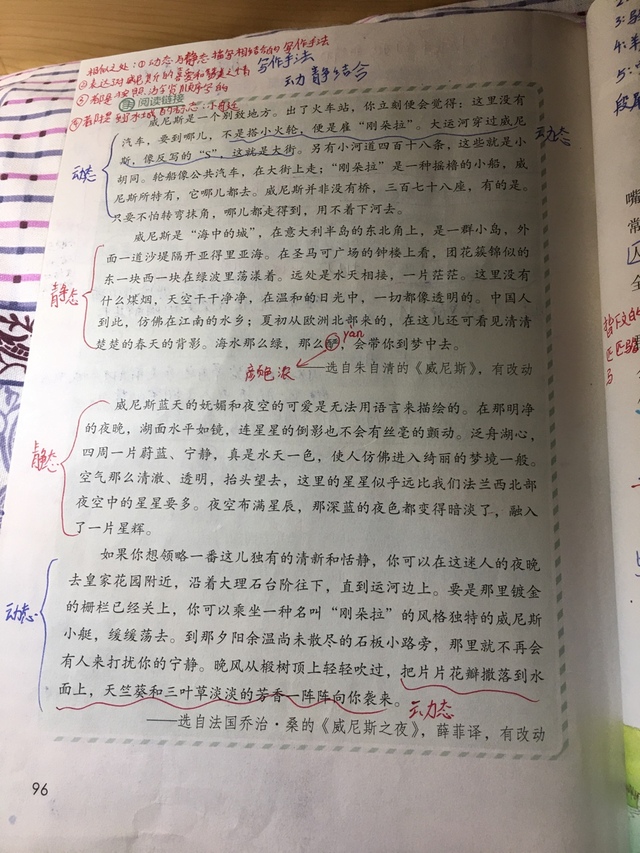 相似之处:①动态与静态描写相结合的写作手法
写作手法
②表达了对威尼斯的喜爱和赞美之情
动静结合
③都是
阅读链接
威尼斯是一个别致地方。出了火车站,你立刻便会觉得:这里没有
汽车,要到哪儿,不是搭小火轮,便是雇“刚朵拉”。大运河穿过威尼
动态
斯,像反写的“S”,这就是大街。另有小河道四百十八条,这些就是小
动态
胡同。轮船像公共汽车,在大街上走;“刚朵拉”是一种摇橹的小船,威
尼斯所特有,它哪儿都去。威尼斯并非没有桥,三百七十八座,有的是。
只要不怕转弯抹角,哪儿都走得到,用不着下河去。
威尼斯是“海中的城”,在意大利半岛的东北角上,是一群小岛,外
面一道沙堤隔开亚得里亚海。在圣马可广场的钟楼上看,团花簇锦似的
东一块西一块在绿波里荡漾着。远处是水天相接,一片茫茫。这里没有
静态
什么煤烟,天空干干净净,在温和的日光中,一切都像透明的。中国人
到此,仿佛在江南的水乡;夏初从欧洲北部来的,在这儿还可看见清清
楚楚的春天的背影。海水那么绿,那么酽,会带你到梦中去。
yàn
——选自朱自清的《威尼斯》,有改动
威尼斯蓝天的妩媚和夜空的可爱是无法用语言来描绘的。在那明净
的夜晚,湖面水平如镜,连星星的倒影也不会有丝毫的颤动。泛舟湖心,
静态
四周一片蔚蓝、宁静,真是水天一色,使人仿佛进入绮丽的梦境一般。
空气那么清澈、透明,抬头望去,这里的星星似乎远比我们法兰西北部
夜空中的星星要多。夜空布满星辰,那深蓝的夜色都变得暗淡了,融入
了一片星辉。
如果你想领略一番这儿独有的清新和恬静,你可以在这迷人的夜晚
去皇家花园附近,沿着大理石台阶往下,直到运河边上。要是那里镀金
动态
的栅栏已经关上,你可以乘坐一种名叫“刚朵拉”的风格独特的威尼斯
小艇,缓缓荡去。到那夕阳余温尚未散尽的石板小路旁,那里就不再会
有人来打扰你的宁静。晚风从椴树顶上轻轻吹过,把片片花瓣撒落到水
面上,天竺葵和三叶草淡淡的芳香一阵阵向你袭来。
动态
——选自法国乔治·桑的《威尼斯之夜》,薛菲译,有改动
96